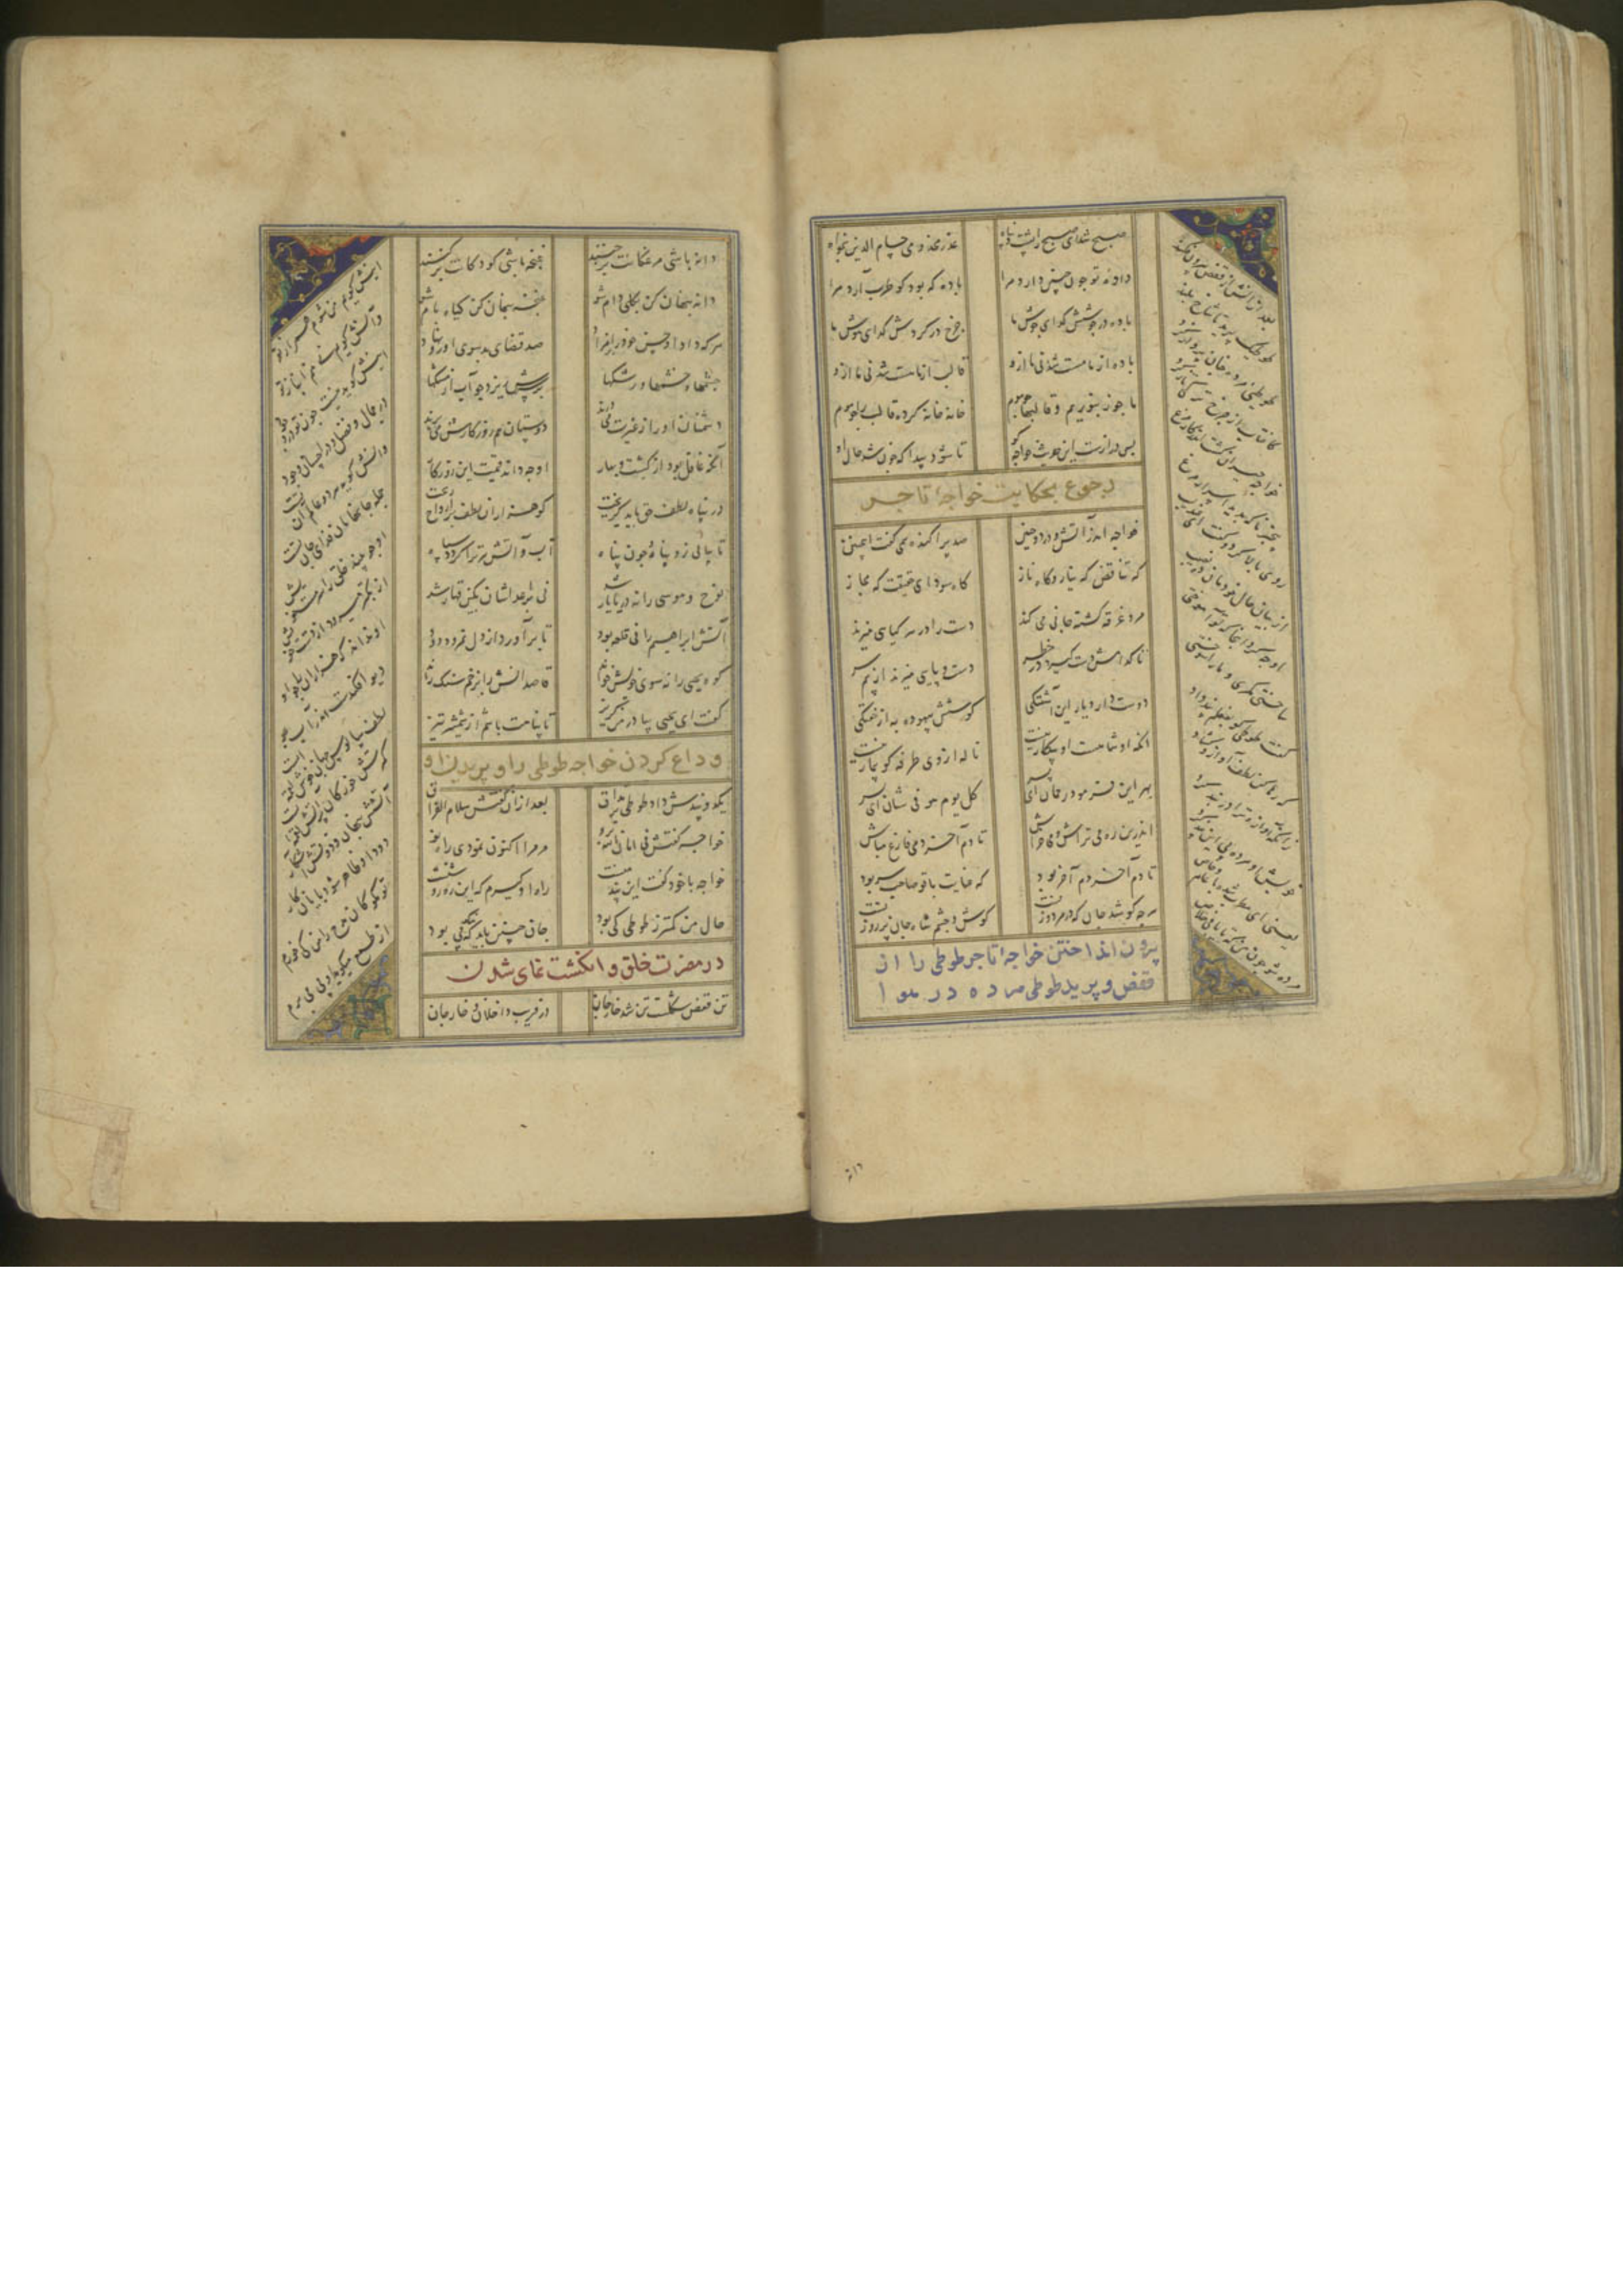 صبح شد ای صبح را پشت و پناه عذر مخدومی حسام الدین بخواه
داد تو چون چنین دارد مرا باده که بود کو طرب آرد مرا
باده در جوشش کدای جوش ما چرخ در کردش کدای هوش ما
باده از ما مست شد نی ما ازو قالب از ما هست شد نی ما ازو
ما چون زنبوریم و قالبها چو موم خانه خانه کرده قالب را چو موم
بس درازست این حدیث خواجه کو تا شود پیدا که چون شد حال او
رجوع بحکایت خواجه تاجر
خواجه اندر آتش و درد و حنین صد پراکنده همی کفت اینچنین
که تناقض که نیاز و کاه ناز کاه سودای حقیقت که مجاز
مرد غرقه کشته جانی می کند دست را در هر کیاهی میزند
تا کدامش دست کیرد در خطر دست و پایی میزند از بیم سر
دوست دارد یار این آشفتکی کوشش بیهوده به از خفتکی
انکه او شاهست او بیکار نیست ناله از وی طرفه کو بیمار نیست
بهر این فرمود رحمان ای پسر کل یوم هو فی شان ای پسر
اندرین ره می تراش و می خراش تا دم آخر دمی فارغ مباش
تا دم آخر دمی آخر بود که عنایت با تو صاحب سر بود
هرچه کوشد جان که در مرد و زنست کوش و چشم شاه جان بر روزنست
بیرون انداختن خواجه تاجر طوطی را از
قفض و پریدن طوطی مرده در هوا
بعد ازانش از قفص بیرون فکند
طوطیک پرید تا شاخ بلند
طوطی مرده چنان پرواز کرد
کافتاب از چرخ ترکی تاز کرد
خواجه حیران کشت اندر کار مرغ
بیخبر ناکه بدید اسرار مرغ
روی بالا کرد و کفت ای عندلیب
از بیان حال خودمان ده نصیب
او چه کرد آنجا که تو آموختی
ساختی مکری و ما را سوختی
کفت طوطی کو بفعلم پند داد
که رها کن لطف آواز و وداد
زانکه آوازت ترا در بند کرد
خویش او مرده پی این پند کرد
یعنی ای مطرب شده با عام و خاص
مرده شو چون من که تا یابی خلاص
دانه
دانه باشی مرغکانت برچنند غنچه باشی کودکانت برکنند
دانه پنهان کن بکلی دام شو غنچه پنهان کن کیاه بام شو
هرکه داد او حسن خود را بر مزاد صد قضای بد سوی او رو نهاد
چشمها و خشمها و رشکها بر سرش ریزد چو آب از مشکها
دشمنان او را ز غیرت می درند دوستان هم روزکارش می برند
آنکه غافل بود از کشت و بهار او چه داند قیمت این روزکار
در پناه لطف حق باید کریخت کو هزاران لطف بر ارواح ریخت
تا پناهی یابی آنکه چون پناه آب و آتش مر ترا کردد سپاه
نوح و موسی را نه دریا یار شد نی بر اعداشان بکین قهار شد
آتش ابراهیم را نی قلعه بود تا برآورد از دل نمرود دود
کوه یحیی را نه سوی خویش خواند قاصدانش را بزخم سنک راند
کفت ای یحیی بیا در من کریز تا پناهت باشم از شمشیر تیز
وداع کردن خواجه طوطی را و پریدن او
یک دو پندش داد طوطی بی نفاق بعد ازان کفتش سلام الفراق
خواجه کفتش فی امان الله برو مر مرا اکنون نمودی راه نو
خواجه با خود کفت این پند منست راه او کیرم که این ره روشنست
جان من کمتر ز طوطی کی بود جان چنین باید که نیکو پی بود
در مضرت خلق و انکشت نمای شدن
تن قفص شکلست تن شد خار جان در فریب داخلان و خارجان
اینش کوید من شوم همراز تو
وآنش کوید نی منم انباز تو
اینش کوید نیست چون تو در وجود
در جمال و فضل و در احسان و جود
وانش کوید هر دو عالم آن تست
جمله جانهامان فدای جان تست
او چو بیند خلق را سرمست خویش
از تکبر میرود از دست خویش
او نداند که هزاران را چو او
دیو افکندست اندر آب جو
لطف و سالوس جهان خوش لقمه است
کمترش خور کان پر آتش لقمه است
آتشش پنهان و ذوقش آشکار
دود او ظاهر شود پایان کار
تو مکو کان مدح را من کی خورم
از طمع میکوید او پی می برم